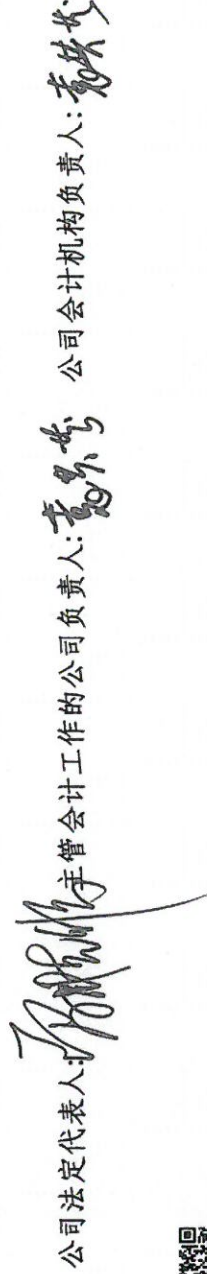 公司法定代表人: 主管会计工作的公司负责人: 公司会计机构负责人: